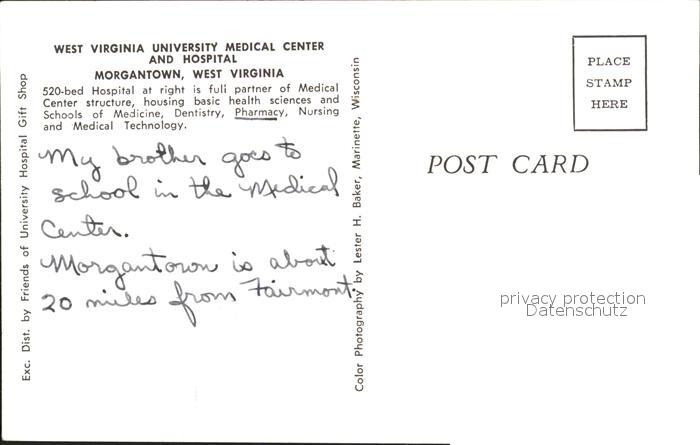 WEST VIRGINIA UNIVERSITY MEDICAL CENTER
AND HOSPITAL
MORGANTOWN, WEST VIRGINIA
520-bed Hospital at right is full partner of Medical
Center structure, housing basic health sciences and
Schools of Medicine, Dentistry, Pharmacy, Nursing
and Medical Technology.
My brother goes to
school in the Medical
Center.
Morgantown is about
20 miles from Fairmont.
Exc. Dist. by Friends of University Hospital Gift Shop
Color Photography by Lester H. Baker, Marinette, Wisconsin
PLACE
STAMP
HERE
POST CARD
privacy protection
Datenschutz